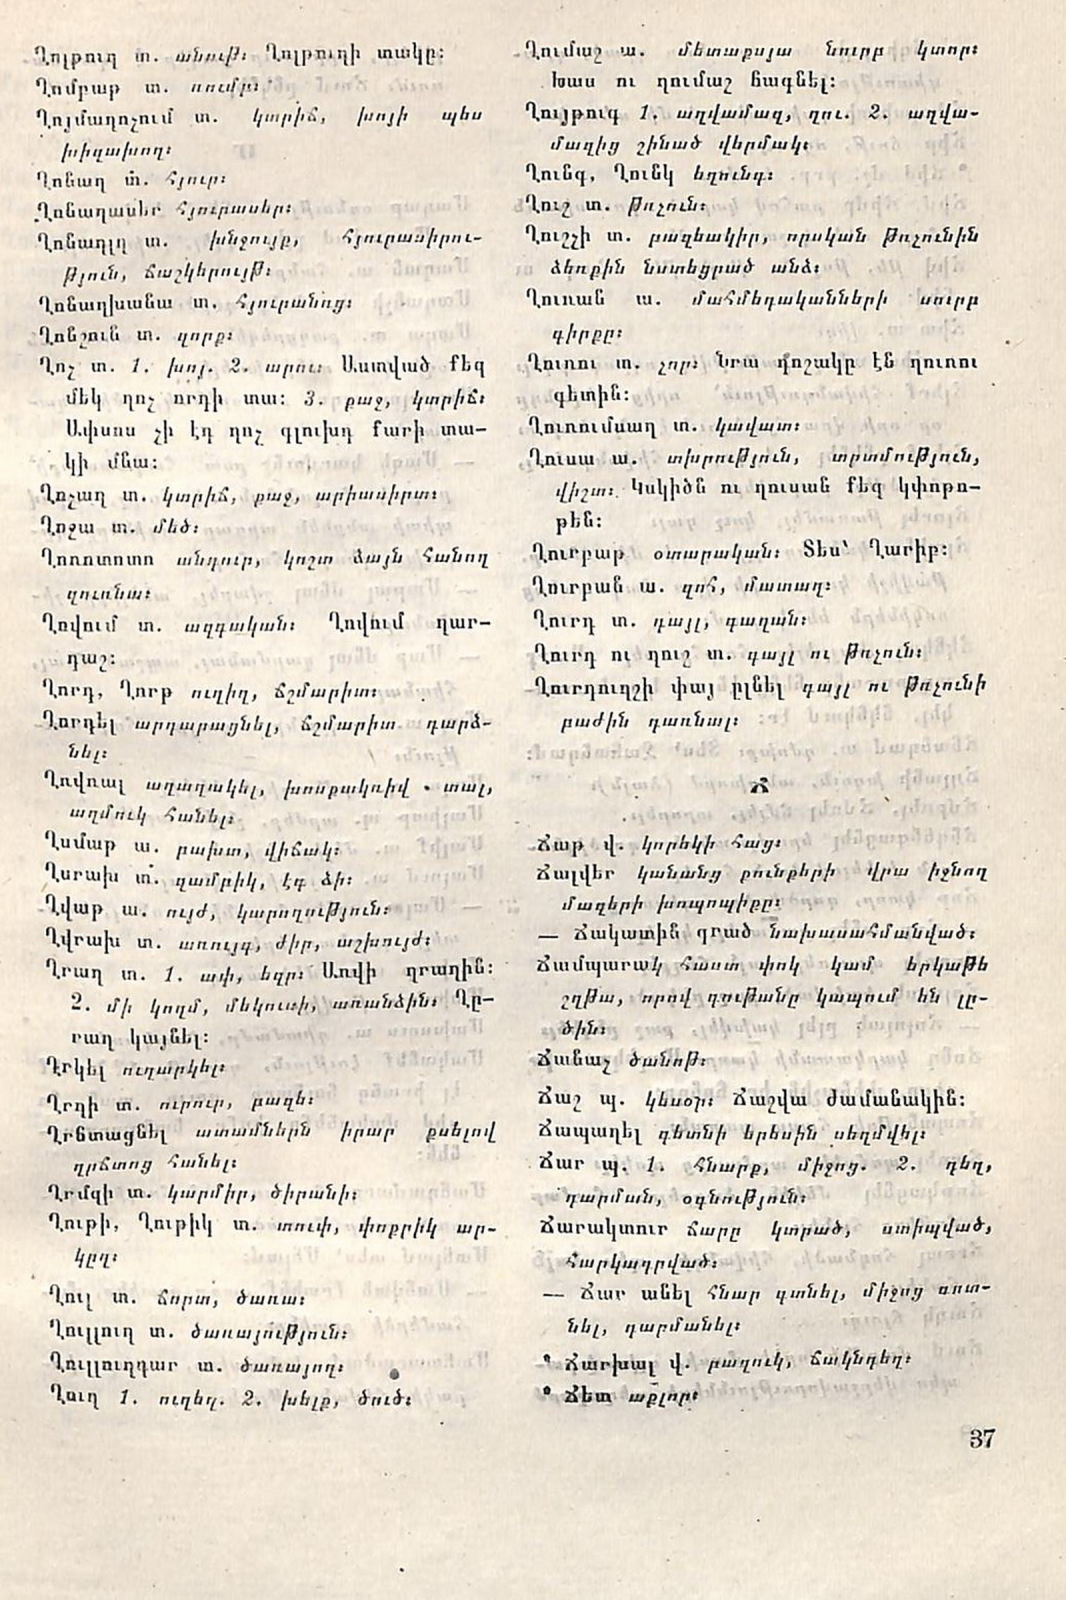 Ղոլթուղ տ. անութ: Ղոլթուղի տակը:
Ղոմբաթ տ. ռումբ:
Ղոյմաղոչում տ. կտրիճ, խոյի պես
խիզախող:
Ղոնաղ տ. հյուր:
Ղոնաղասեր հյուրասեր:
Ղոնաղլղ տ. խնջույք, հյուրասիրու-
թյուն, ճաշկերույթ:
Ղոնաղխանա տ. հյուրանոց:
Ղոնշուն տ. զորք:
Ղոչ տ. 1. խոյ. 2. արու: Աստված քեզ
մեկ ղոչ որդի տա: 3. քաջ, կտրիճ:
Ափսոս չի էդ ղոչ գլուխդ քարի տա-
կի մնա:
Ղոչաղ տ. կտրիճ, քաջ, արիասիրտ:
Ղոջա տ. մեծ:
Ղոռոտոտո անդուր, կոշտ ձայն հանող
զուռնա:
Ղովում տ. ազգական: Ղովում ղար-
դաշ:
Ղորդ, Ղորթ ուղիղ, ճշմարիտ:
Ղորդել արդարացնել, ճշմարիտ դարձ-
նել:
Ղովռալ աղաղակել, խոսքակռիվ տալ,
աղմուկ հանել:
Ղսմաթ ա. բախտ, վիճակ:
Ղսրախ տ. զամբիկ, էգ ձի:
Ղվաթ ա. ույժ, կարողություն:
Ղվրախ տ. առույգ, ժիր, աշխույժ:
Ղրաղ տ. 1. ափ, եզր: Առվի ղրաղին:
2. մի կողմ, մեկուսի, առանձին: Ղը-
րաղ կայնել:
Ղրկել ուղարկել:
Ղրղի տ. ուրուր, բազե:
Ղրճտացնել ատամներն իրար քսելով
ղրճտոց հանել:
Ղրմզի տ. կարմիր, ծիրանի:
Ղութի, Ղութիկ տ. տուփ, փոքրիկ ար-
կըղ:
Ղուլ տ. ճորտ, ծառա:
Ղուլլուղ տ. ծառայություն:
Ղուլլուղդար տ. ծառայող:
Ղուղ 1. ուղեղ. 2. խելք, ծուծ:
Ղումաշ ա. մետաքսյա նուրբ կտոր:
Խաս ու ղումաշ հագնել:
Ղույթուգ 1. աղվամազ, ղու. 2. աղվա-
մազից շինած վերմակ:
Ղունգ, Ղունկ եղունգ:
Ղուշ տ. թռչուն:
Ղուշչի տ. բազեակիր, որսկան թռչունին
ձեռքին նստեցրած անձ:
Ղուռան ա. մահմեդականների սուրբ
գիրքը:
Ղուռու տ. չոր: Նրա դոշակը էն ղուռու
գետին:
Ղուռումսաղ տ. կավատ:
Ղուսա ա. տխրություն, տրտմություն,
վիշտ: Կսկիծն ու ղուսան քեզ կփոթո-
թեն:
Ղուրբաթ օտարական: Տես՝ Ղարիբ:
Ղուրբան ա. զոհ, մատաղ:
Ղուրդ տ. գայլ, գազան:
Ղուրդ ու ղուշ տ. գայլ ու թռչուն:
Ղուրդուղշի փայ ըլնել գայլ ու թռչունի
բաժին դառնալ:
Ճ
Ճաթ վ. կորեկի հաց:
Ճալվեր կանանց քունքերի վրա իջնող
մազերի խոպոպիքը:
— Ճակատին գրած նախասահմանված:
Ճամպարակ հաստ փոկ կամ երկաթե
շղթա, որով գութանը կապում են լը-
ծին:
Ճանաչ ծանոթ:
Ճաշ պ. կեսօր: Ճաշվա ժամանակին:
Ճապաղել գետնի երեսին սեղմվել:
Ճար պ. 1. հնարք, միջոց. 2. դեղ,
դարման, օգնություն:
Ճարակտուր ճարը կտրած, ստիպված,
հարկադրված:
— Ճար անել հնար գտնել, միջոց գտ-
նել, դարմանել:
* Ճարխալ վ. բազուկ, ճակնդեղ:
* Ճետ աքլոր:
37